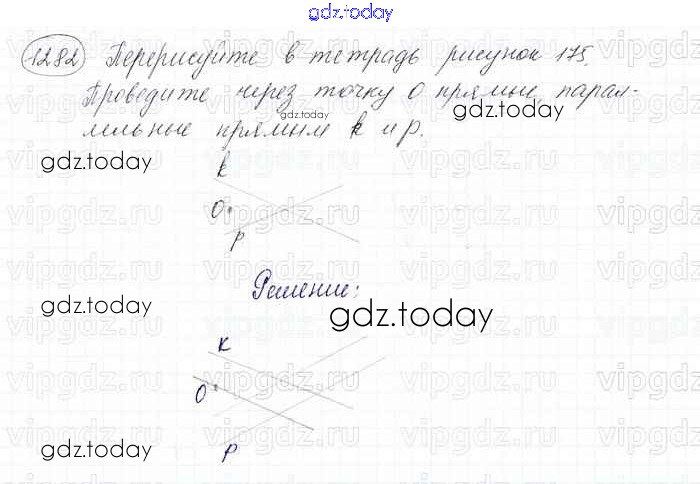 gdz.today
1282 Перерисуйте в тетрадь рисунок 175.
Проведите через точку O прямые, парал-
лельные прямым k и p.
gdz.today
gdz.today
k
O
p
Решение:
gdz.today
gdz.today
k
O
p
gdz.today
vipgdz.ru vipgdz.ru vipgdz.ru vipgdz.ru